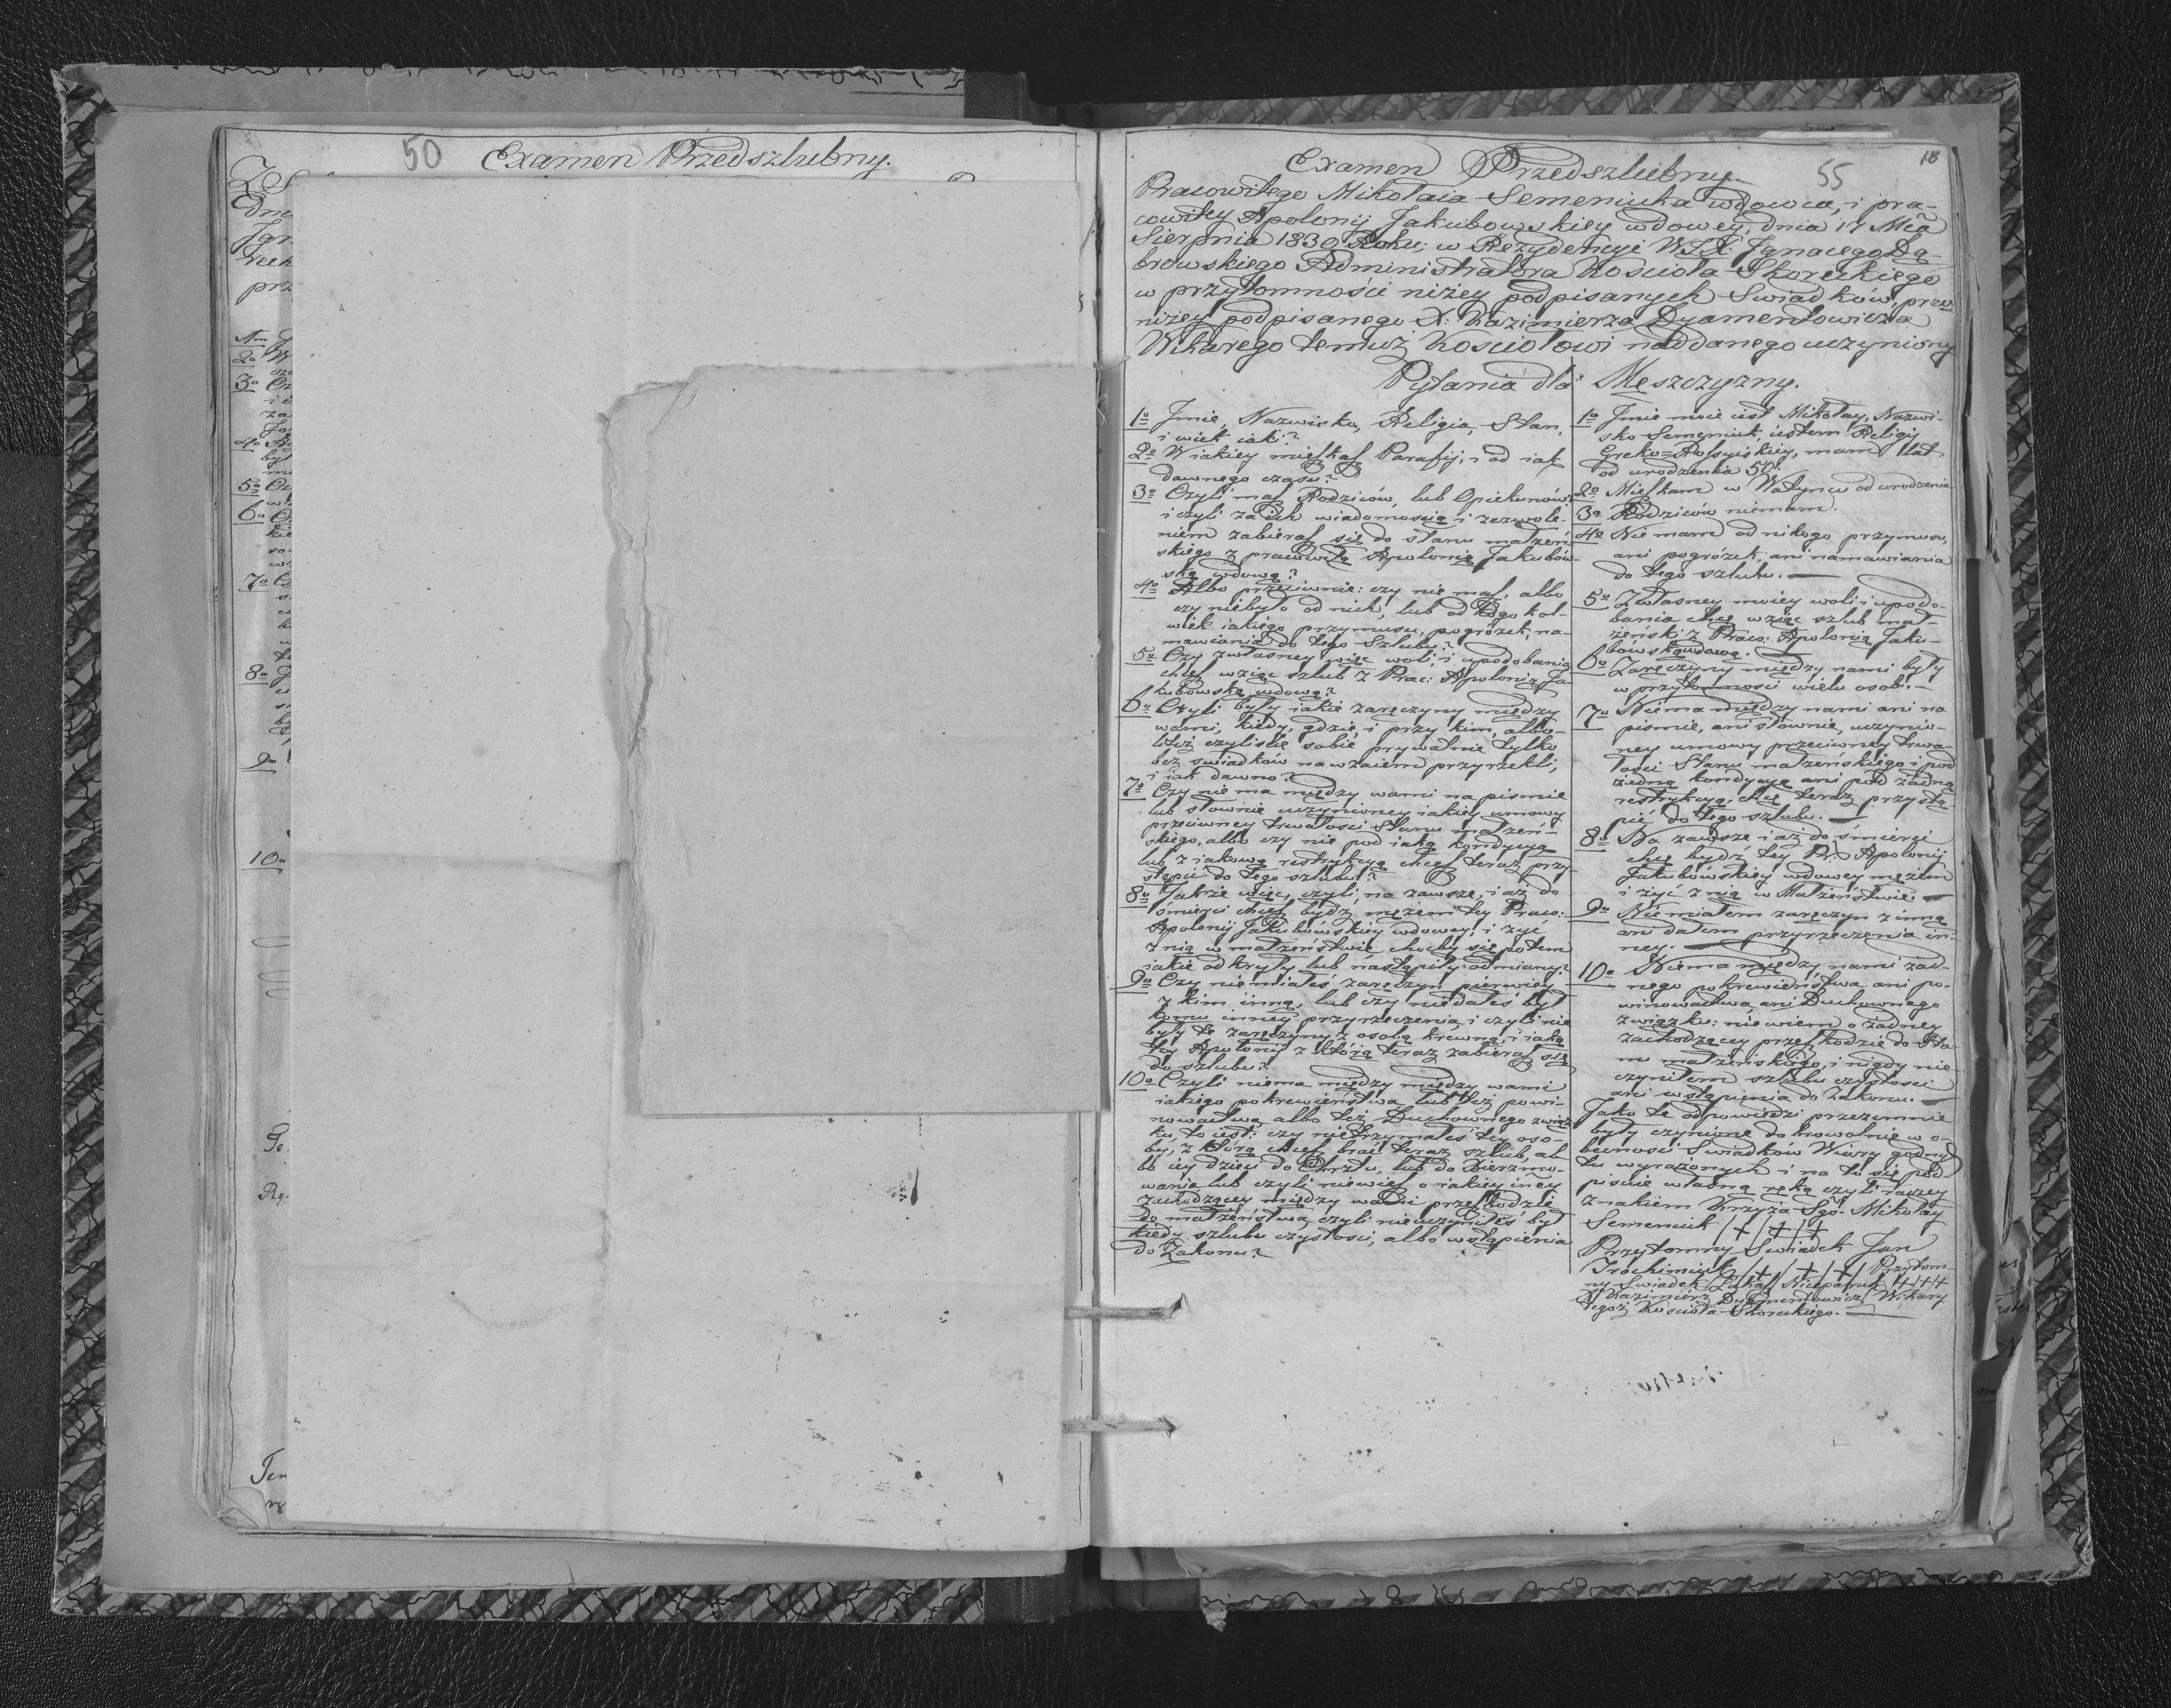 50 Examen Przedszlubny.
Examen Przedszlubny.
55
18
Pracowitego Mikołaia Semeniuka wdowca, i pra-
cowitey Apolonij Jakubowskiey wdowey, dnia 17 Mca
Sierpnia 1830 Roku: w Rezydencyi WJX: Jgnacego Dą-
browskiego Administratora Kościoła Skoreckiego
w przytomności niżey podpisanych Swiadków, przez
niżey podpisanego X: Kazimierza Dyamentowicza
Wikarego temuż Kościołowi naddanego uczyniony
Pytania dla Męszczyzny.
1o Jmie, Nazwisko, Religia, Stan,
i wiek iaki?
2o W iakiey mięszkasz Parafij, i od iak
dawnego czasu?
3o Czyli masz Rodziców, lub Opiekunów?
i czyli za ich wiadomością i zezwole-
niem zabierasz się do stanu małżeń-
skiego z pracowitą Apolonią Jakubów-
ską wdową?
4o Albo przeciwnie: czy nie masz, albo
czy niebyło od nich, lub od kogo kol-
wiek iakiego przymusu, pogróżek, na-
mawiania do tego Szlubu?
5o Czy zwłasney więc woli, i upodobania
chcesz wziąc szlub z Prac: Apolonią Ja-
kubowską wdową?
6o Czyli były iakie zaręczyny między
wami, kiedy, gdzie, i przy kim, albo-
liteż czyliście sobie prywatnie tylko
bez swiadków nawzaiem przyrzekli,
i iak dawno?
7o Czy nie ma między wami na pismie
lub słownie uczynioney iakiey umowy
przeciwney trwałosci Stanu małżeń-
skiego, albo czy nie pod iaką kondycyą
lub z iakową restrykcyą chcesz teraz przy-
stąpić do tego szlubu?
8o Jakże więc, czyli, na zawsze, i aż do
śmierci chcesz bydź mężem tey Praco:
Apolonij Jakubówskiey wdowey, i żyć
z nią w małżeństwie choćby się potem
iakie odkryły lub nastąpiły odmiany?
9o Czy niemiałeś zaręczyn pierwiey
z kim inną, lub czy niedałeś był
komu inney przyrzeczenia, i czyli nie
były te zaręczyny z osobą krewną, i iaką
tey Apolonij z którą teraz zabierasz się
do szlubu?
10o Czyli niema między między wami
iakiego pokrewieństwa lub też powi-
nowactwa, albo też Duchownego związ-
ku, to iest: czy nietrzymałeś tey oso-
by, z którą chcesz brać teraz szlub, al-
bo iey dzieci do Chrztu, lub do Bierzmo-
wania lub czyli niewiesz o iakiey iney
zachodzącey między wami przeszkodzie
do małżeństwa, czyli nieuczyniłeś był
kiedy szlubu czystosci, albo wstąpienia
do Zakonu?
1o Jmie moie iest Mikołay, Nazwi-
sko Semeniuk, iestem Religij
Greko=Rossyiskiey, mam lat
od urodzenia 50.
2o Mieszkam w Watyncu od urodzenia
3o Rodziców niemam.
4o Niemam od nikogo przymusu,
ani pogróżek, ani namawiania
do tego szlubu.
5o Zwłasney moiey woli i upodo-
bania chcę wziąc szlub mał-
żeński z Praco: Apolonią Jaku-
bówską wdową.
6o Zaręczyny między nami były
w przytomnosci wielu osob.
7o Niema między nami ani na
pismie, ani słownie, uczynio-
ney umowy przeciwney trwa-
łosci Stanu małżeńskiego i pod
żadną kondycyą ani pod żadną
restrykcyą, chcę teraz przystą-
pić do tego szlubu.
8o Na zawsze i aż do śmierci
chcę bydź tey Pr: Apolonij
Jakubówskiey wdowey mężem
i żyć z nią w Małżeństwie.
9o Niemiałem zaręczyn z inną
ani dałem przyrzeczenia in-
ney.
10o Niema między nami żad-
nego pokrewieństwa ani po-
winowactwa, ani Duchownego
związku: niewiem o żadney
zachodzącey przeszkodzie do Sta-
nu małżeńskiego, i nigdy nie
czyniłem szlubu czystosci
ani wstąpienia do Zakonu.
Jako te odpowiedzi przezemnie
były czynione dobrowolnie w o-
becnosci Swiadków Wiary godnych
tu wyrażonych i na to się pod-
pisuie własną ręką czyli raczey
znakiem Krzyża Sgo. Mikołay
Semeniuk +/+/+
Przytomny Swiadek Jan
Trochimiuk +/+/+/ Przytom-
ny Swiadek Łukasz +++
X: Kazimierz Dyamentowicz Wikary
tegoż Kościoła Skoreckiego.